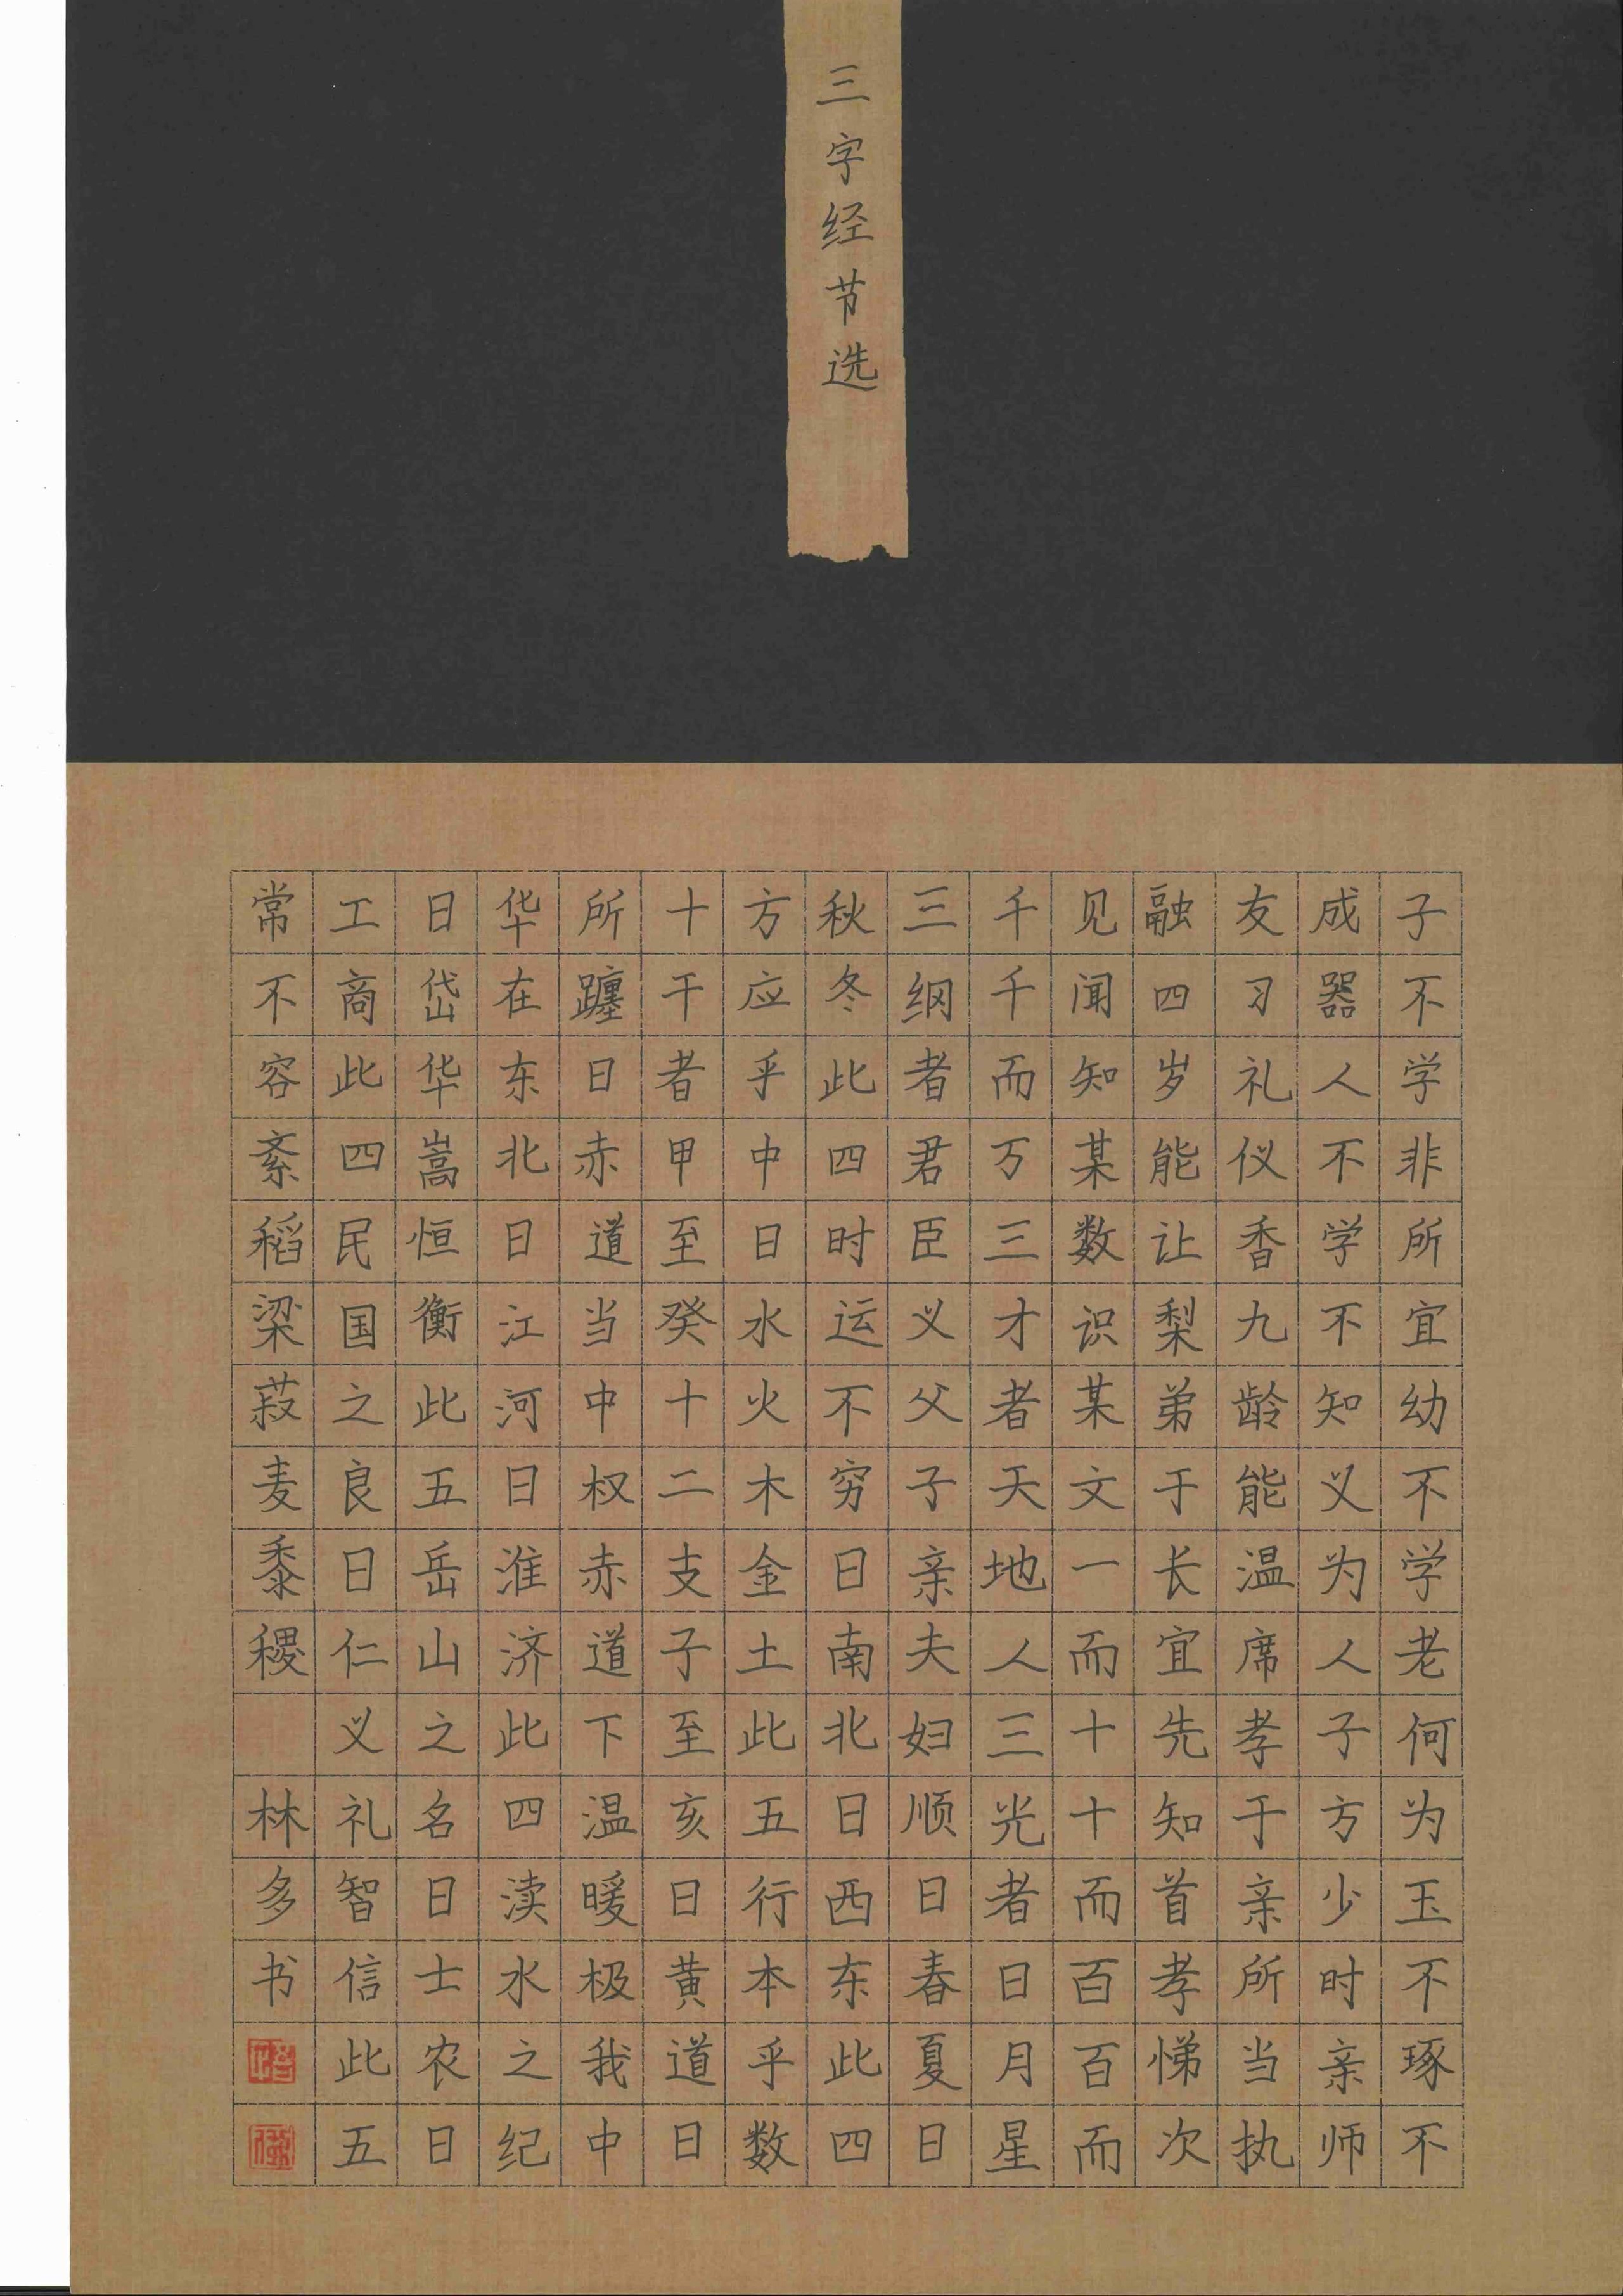 三字经节选
子不学非所宜幼不学老何为玉不琢不
成器人不学不知义为人子方少时亲师
友习礼仪香九龄能温席孝于亲所当执
融四岁能让梨弟于长宜先知首孝悌次
见闻知某数识某文一而十十而百百而
千千而万三才者天地人三光者日月星
三纲者君臣义父子亲夫妇顺日春夏日
秋冬此四时运不穷日南北日西东此四
方应乎中日水火木金土此五行本乎数
十干者甲至癸十二支子至亥日黄道日
所躔日赤道当中权赤道下温暖极我中
华在东北日江河日淮济此四渎水之纪
日岱华嵩恒衡此五岳山之名日士农日
工商此四民国之良日仁义礼智信此五
常不容紊稻梁菽麦黍稷 林多书